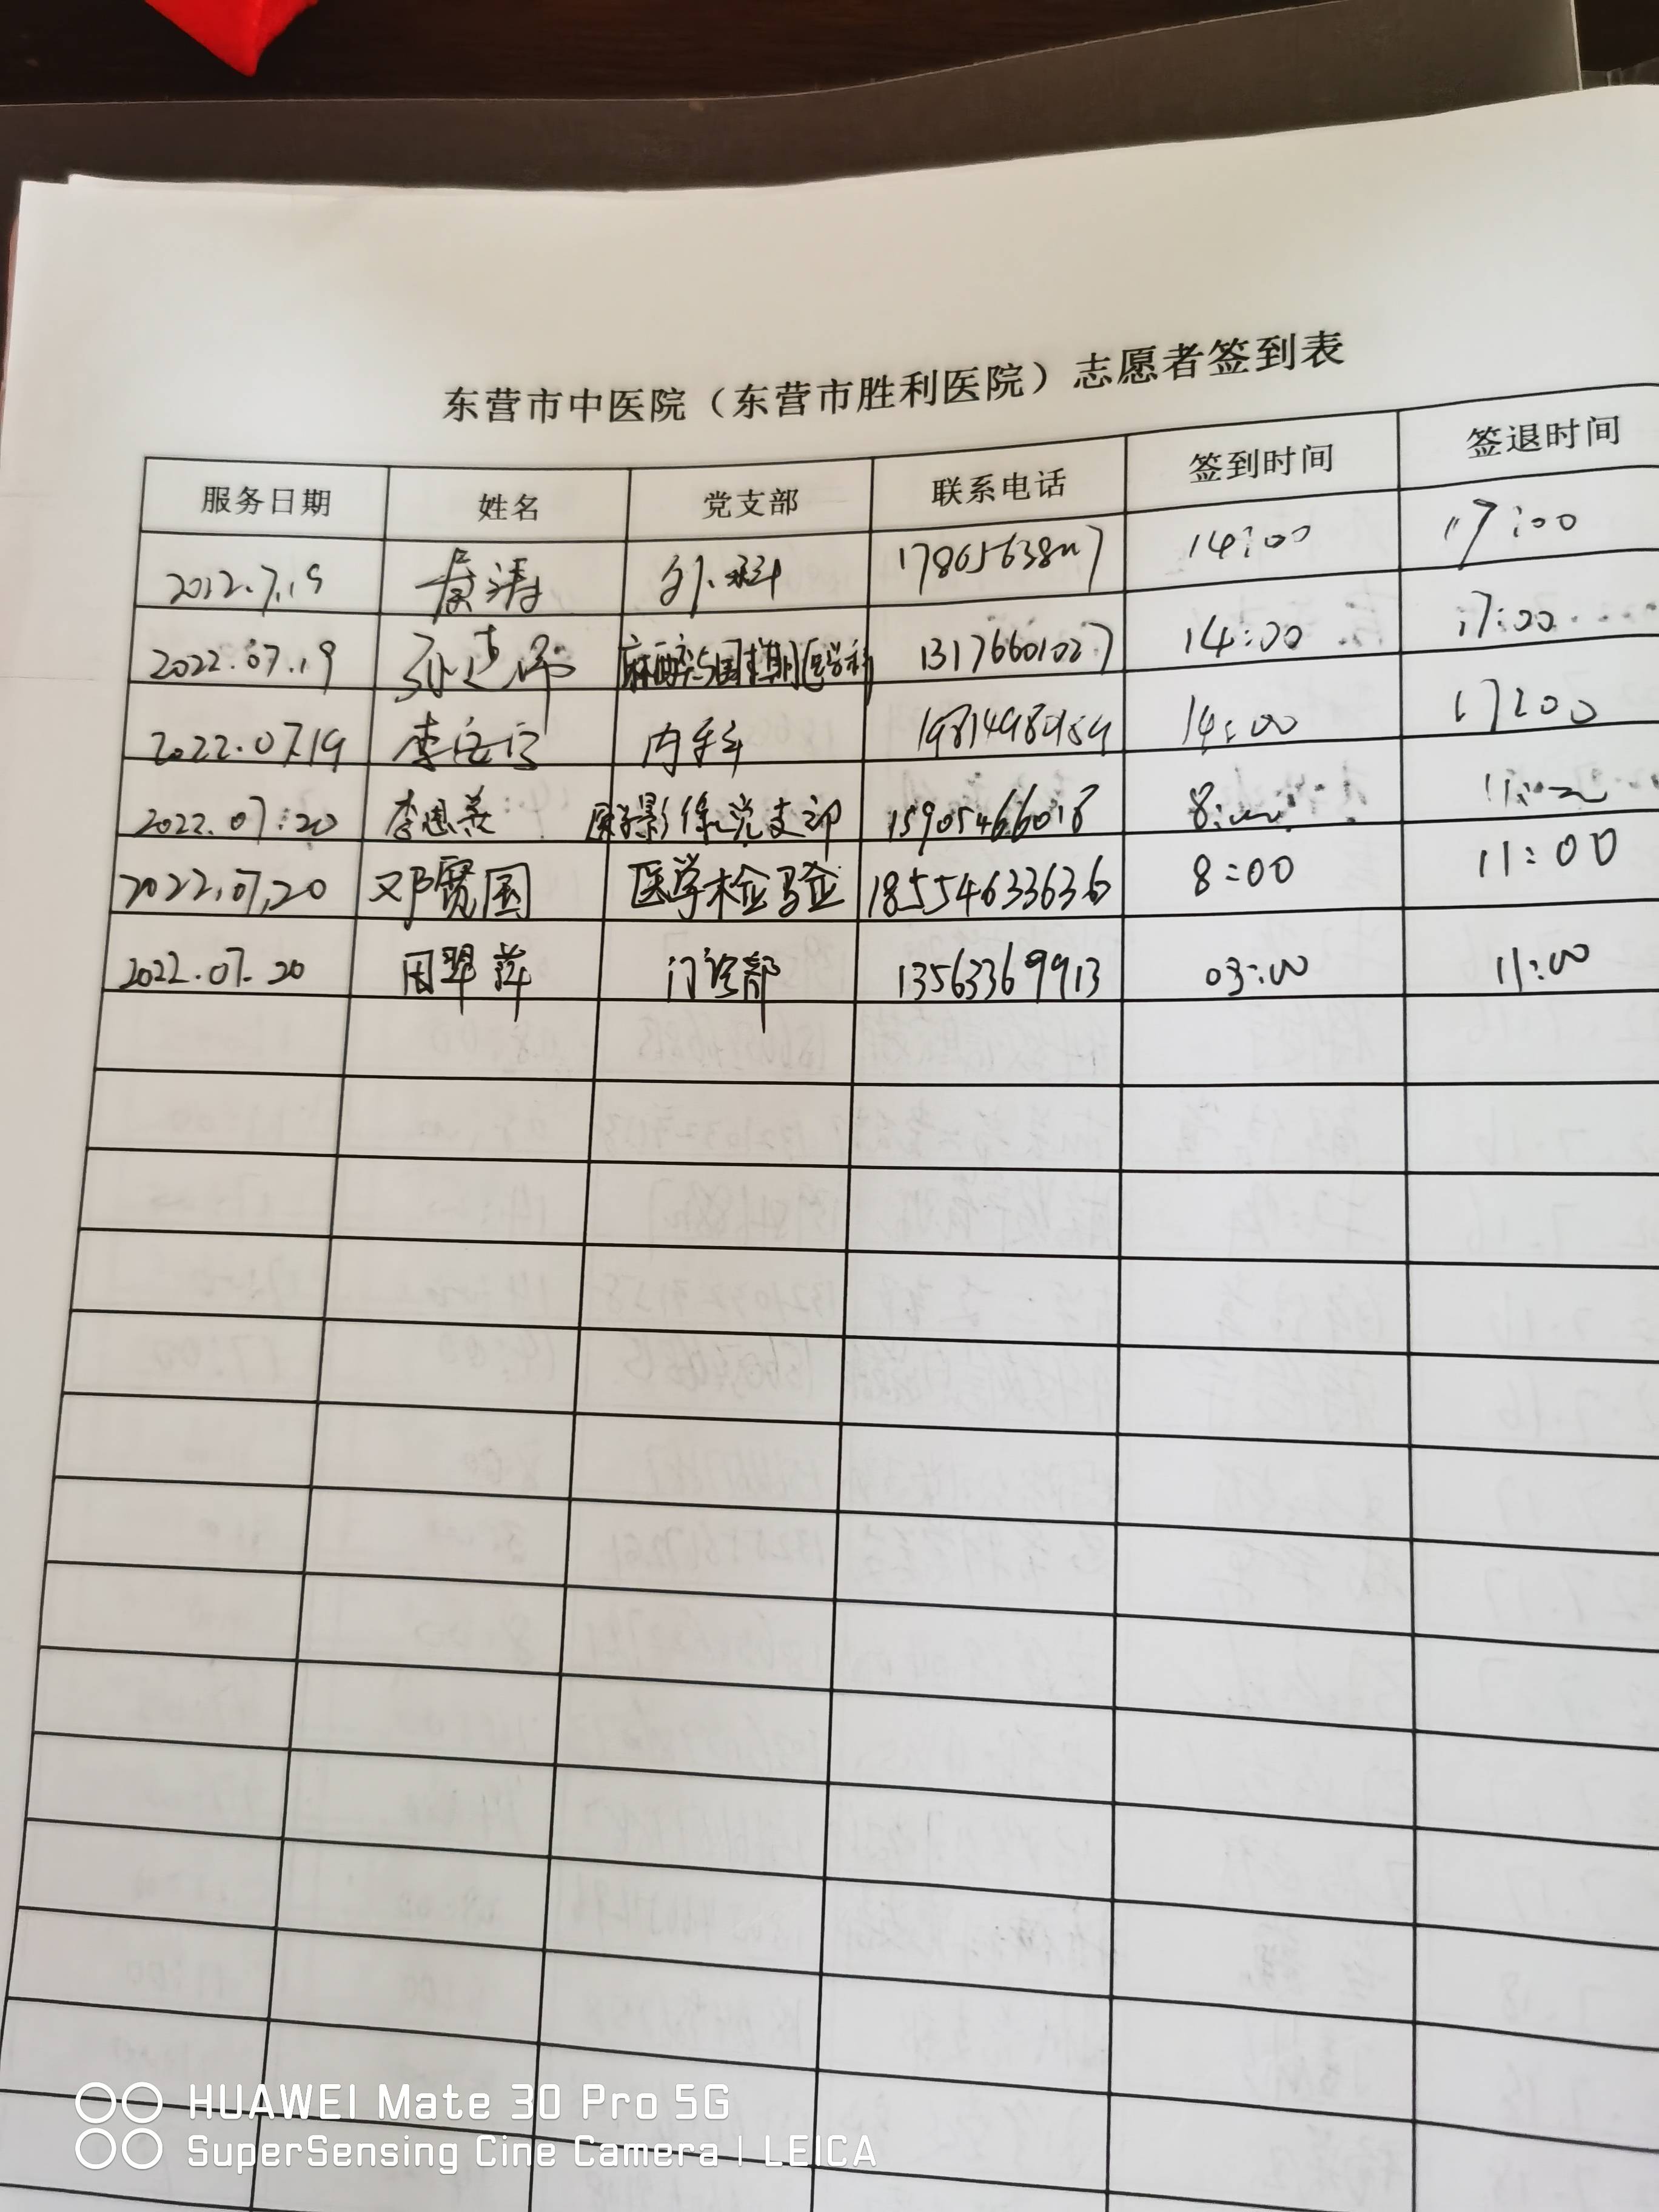 东营市中医院（东营市胜利医院）志愿者签到表
服务日期 姓名 党支部 联系电话 签到时间 签退时间
2022.7.19 涛 外科 14:00 17:00
2022.07.19 孙建 麻醉与围术期医学科 13176601027 14:00 17:00
2022.07.19 李 内科 14:00 17:00
2022.07.20 李恩 医学影像党支部 15905466018 8:00 11:00
2022.07.20 邓宽国 医学检验 18554633636 8:00 11:00
2022.07.20 周翠萍 门诊部 13563369913 03:00 11:00
HUAWEI Mate 30 Pro 5G
SuperSensing Cine Camera | LEICA